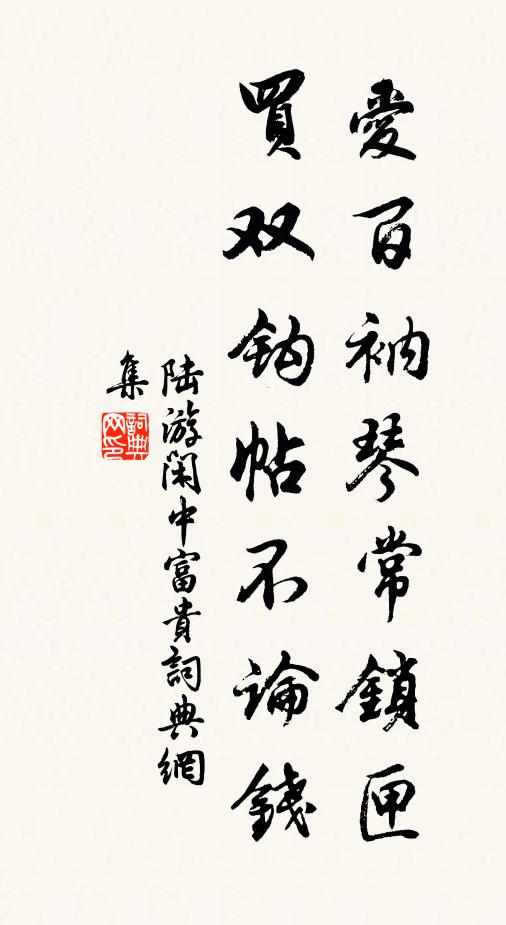 愛百衲琴常鎖匣
買双鈎帖不論錢
陆游闲中富貴詞典網
集
詞典
网印